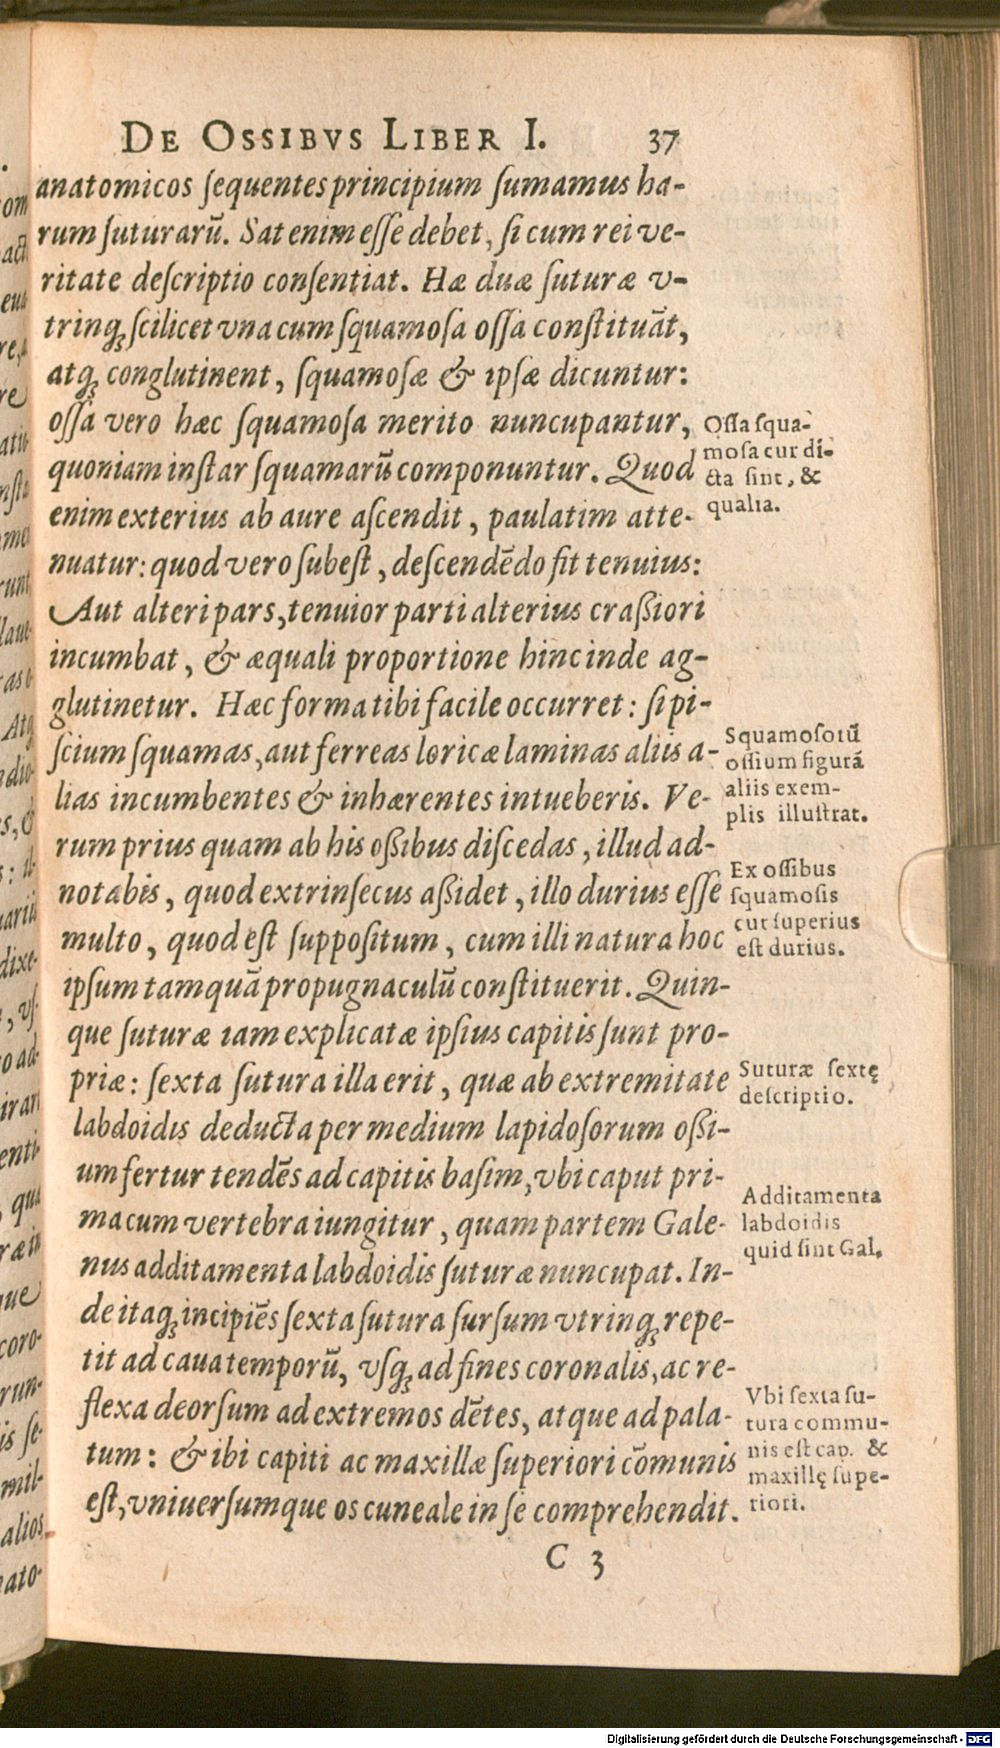 DE OSSIBVS LIBER I. 37
anatomicos ſequentes principium ſumamus ha-
rum ſuturarū. Sat enim eſſe debet, ſi cum rei ve-
ritate deſcriptio conſentiat. Hæ duæ ſuturæ v-
trinqꝫ ſcilicet vna cum ſquamoſa oſſa conſtituāt,
atqꝫ conglutinent, ſquamoſæ & ipſæ dicuntur:
oſſa vero hæc ſquamoſa merito nuncupantur,
quoniam inſtar ſquamarū componuntur. Quod
enim exterius ab aure aſcendit, paulatim atte-
nuatur: quod vero ſubeſt, deſcendēdo fit tenuius:
Aut alteri pars, tenuior parti alterius craßiori
incumbat, & æquali proportione hinc inde ag-
glutinetur. Hæc forma tibi facile occurret: ſi pi-
ſcium ſquamas, aut ferreas loricæ laminas aliis a-
lias incumbentes & inhærentes intueberis. Ve-
rum prius quam ab his oßibus diſcedas, illud ad-
notabis, quod extrinſecus aßidet, illo durius eſſe
multo, quod eſt ſuppoſitum, cum illi natura hoc
ipſum tamquā propugnaculū conſtituerit. Quin-
que ſuturæ iam explicatæ ipſius capitis ſunt pro-
priæ: ſexta ſutura illa erit, quæ ab extremitate
labdoidis deducta per medium lapidoſorum oßi-
um fertur tendēs ad capitis baſim, vbi caput pri-
ma cum vertebra iungitur, quam partem Gale-
nus additamenta labdoidis ſuturæ nuncupat. In-
de itaqꝫ incipiēs ſexta ſutura ſurſum vtrinqꝫ repe-
tit ad caua temporū, vſqꝫ ad fines coronalis, ac re-
flexa deorſum ad extremos dētes, atque ad pala-
tum: & ibi capiti ac maxillæ ſuperiori cōmunis
eſt, vniuerſumque os cuneale in ſe comprehendit.
C 3
Oſſa ſqua-
moſa cur di-
cta ſint, &
qualia.
Squamoſorū
oſſium figurā
aliis exem-
plis illuſtrat.
Ex oſſibus
ſquamoſis
cur ſuperius
eſt durius.
Suturæ ſextę
deſcriptio.
Additamenta
labdoidis
quid ſint Gal.
Vbi ſexta ſu-
tura commu-
nis eſt cap. &
maxillę ſupe-
riori.
Digitalisierung gefördert durch die Deutsche Forschungsgemeinschaft - DFG